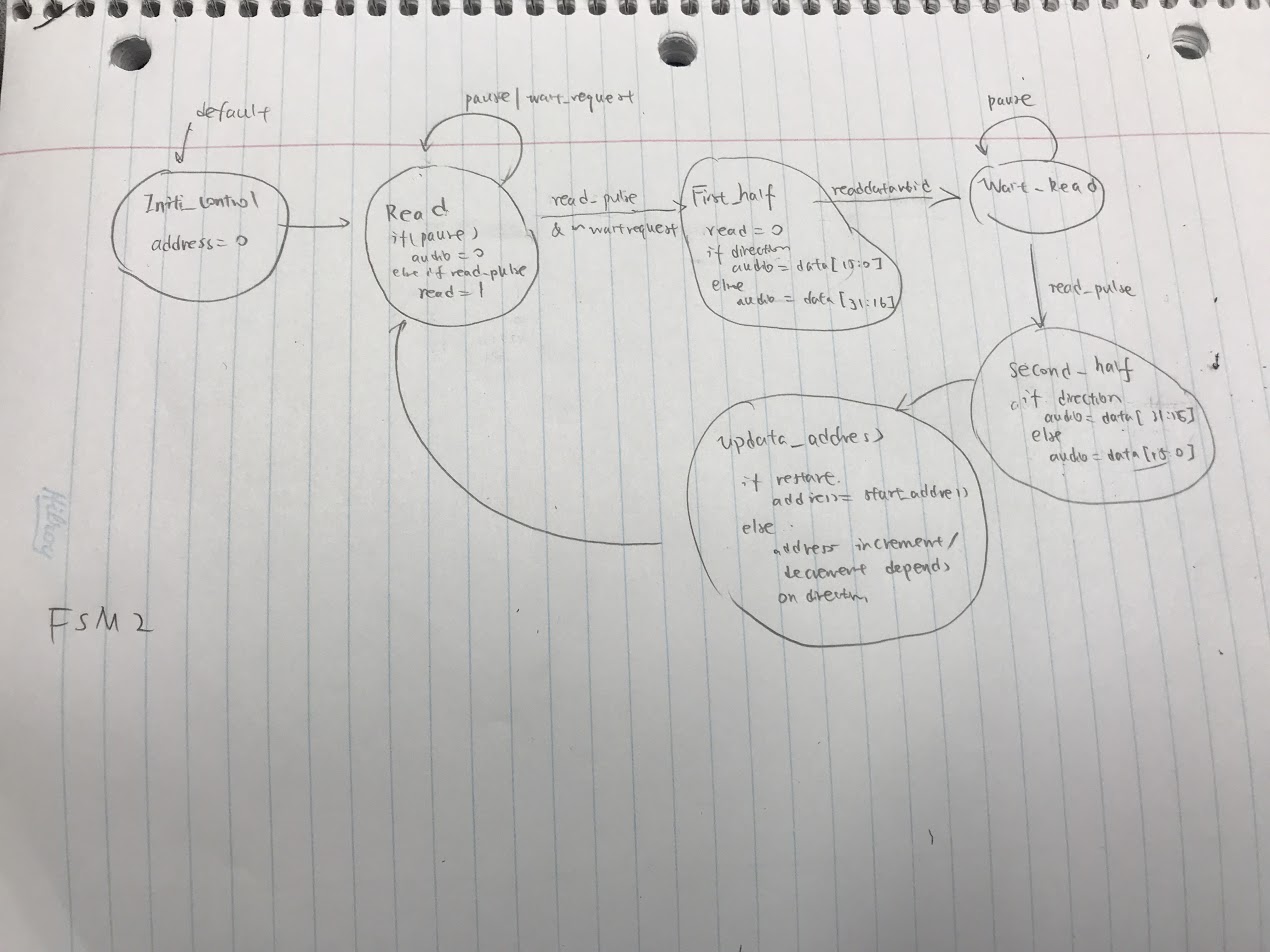 default
Initi_control
address = 0
pause | wait_request
Read
if(pause)
audio = 0
else if read_pulse
read = 1
read_pulse
& ~ waitrequest
First_half
read = 0
if direction
audio = data[15:0]
else
audio = data [31:16]
readdatavalid
pause
Wait_Read
read_pulse
second_half
if direction
audio = data[ 31:15]
else
audio = data [15:0]
updata_address
if restart
address = start_address
else
address increment/
decrement depends
on directn
Hilroy
FSM2